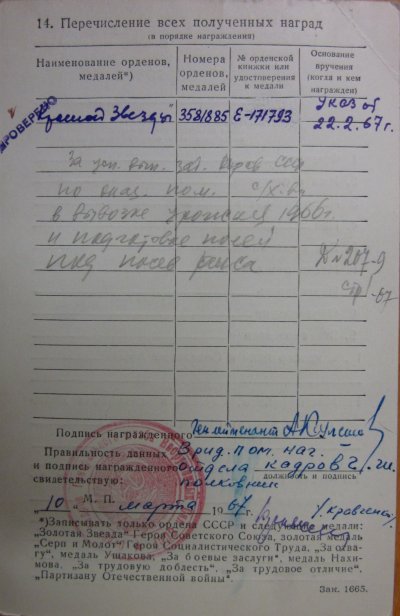 14. Перечисление всех полученных наград
(в порядке награждения)
Наименование орденов, медалей*)
Номера орденов, медалей
№ орденской книжки или удостоверения к медали
Основание вручения (когда и кем награжден)
ПРОВЕРЕНО
Красной Звезды" 3581885 Е-171793 Указ от
22.2.67 г.
За усп. вып. зад.
по оказ. пом. с/х.
в вывозке урожая 1966г.
и подготовке полей
под посев
Подпись награжденного Ген лейтенант
Правильность данных Врид. пом. нач.
и подпись награжденного отдела кадров
свидетельствую: полковник
должность и подпись
М. П.
"10" марта 1967 г.
*)Записывать только ордена СССР и следующие медали:
„Золотая Звезда" Героя Советского Союза, золотая медаль
„Серп и Молот" Героя Социалистического Труда, „За отва-
гу", медаль Ушакова, „За боевые заслуги", медаль Нахи-
мова, „За трудовую доблесть", „За трудовое отличие",
„Партизану Отечественной войны".
Зак. 1665.